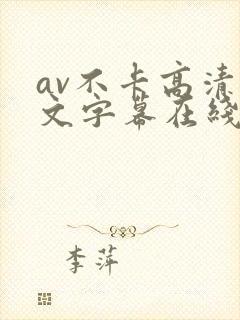 av不卡高清
文字幕在线
李萍